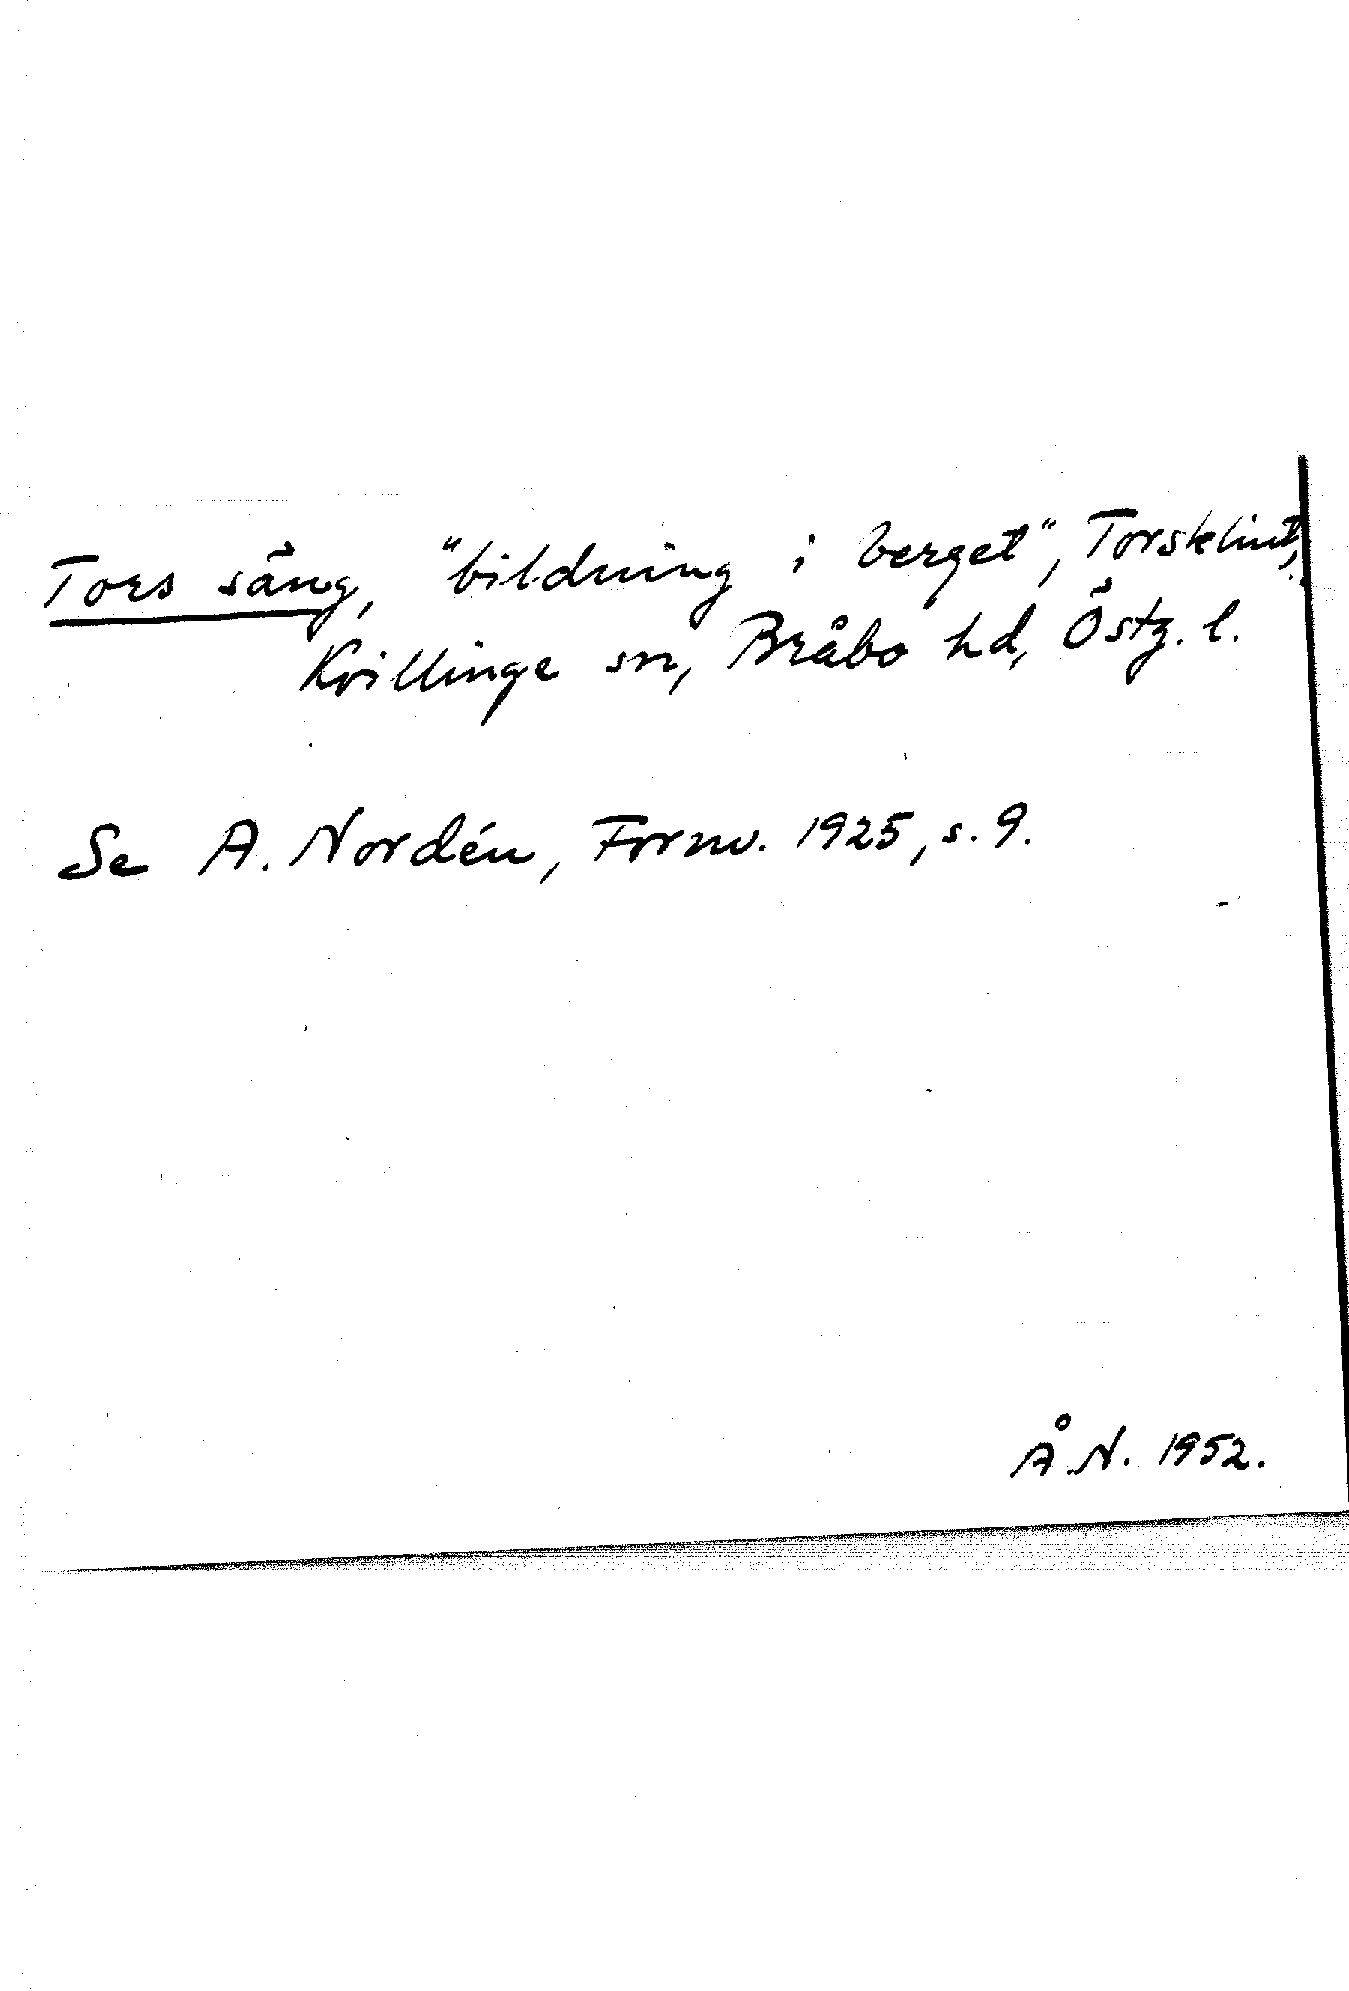 Tors säng, "bildning i berget", Torsklint,
Kvillinge sn, Bråbo hd, Östg. l.
Se A. Nordén, Fornv. 1925, s. 9.
Å.N. 1952.